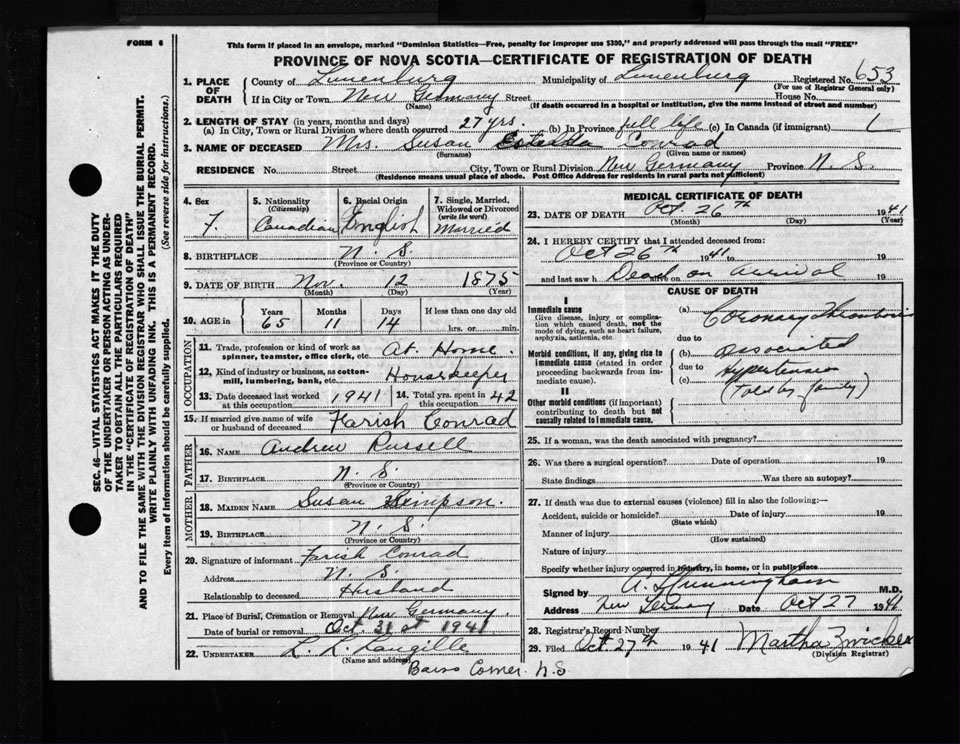 FORM 6
This form if placed in an envelope, marked "Dominion Statistics—Free, penalty for improper use $300," and properly addressed will pass through the mail "FREE"
PROVINCE OF NOVA SCOTIA—CERTIFICATE OF REGISTRATION OF DEATH
1. PLACE OF DEATH
County of Lunenburg Municipality of Lunenburg Registered No. 653
(For use of Registrar General only)
If in City or Town New Germany Street House No.
(Name) (If death occurred in a hospital or institution, give the name instead of street and number)
2. LENGTH OF STAY (in years, months and days)
(a) In City, Town or Rural Division where death occurred 27 yrs. (b) In Province full life (c) In Canada (if immigrant)
3. NAME OF DECEASED Mrs. Susan Estella Conrad
(Surname) (Given name or names)
RESIDENCE No. Street City, Town or Rural Division New Germany Province N. S.
(Residence means usual place of abode. Post Office Address for residents in rural parts not sufficient)
SEC. 46—VITAL STATISTICS ACT MAKES IT THE DUTY
OF THE UNDERTAKER OR PERSON ACTING AS UNDERTAKER TO OBTAIN ALL THE PARTICULARS REQUIRED
IN THE "CERTIFICATE OF REGISTRATION OF DEATH"
AND TO FILE THE SAME WITH THE DIVISION REGISTRAR WHO SHALL ISSUE THE BURIAL PERMIT.
WRITE PLAINLY WITH UNFADING INK. THIS IS A PERMANENT RECORD.
Every item of information should be carefully supplied. (See reverse side for instructions.)
4. Sex 5. Nationality (Citizenship) 6. Racial Origin 7. Single, Married, Widowed or Divorced (write the word)
F. Canadian English Married
8. BIRTHPLACE N. S.
(Province or Country)
9. DATE OF BIRTH Nov. 12 1875
(Month) (Day) (Year)
10. AGE in Years Months Days If less than one day old
65 11 14 hrs. or min.
OCCUPATION
11. Trade, profession or kind of work as spinner, teamster, office clerk, etc. At Home.
12. Kind of industry or business, as cotton-mill, lumbering, bank, etc. Housekeeper
13. Date deceased last worked at this occupation 1941 14. Total yrs. spent in this occupation 42
15. If married give name of wife or husband of deceased Farish Conrad
FATHER
16. NAME Andrew Russell
17. BIRTHPLACE N. S.
(Province or Country)
MOTHER
18. MAIDEN NAME Susan Simpson.
19. BIRTHPLACE N. S.
(Province or Country)
20. Signature of informant Farish Conrad
Address N. S.
Relationship to deceased Husband
21. Place of Burial, Cremation or Removal New Germany.
Date of burial or removal Oct 31st 1941
22. UNDERTAKER L. L. Langille
(Name and address)
Barss Corner. N.S
MEDICAL CERTIFICATE OF DEATH
23. DATE OF DEATH Oct 26th 1941
(Month) (Day) (Year)
24. I HEREBY CERTIFY that I attended deceased from:
Oct 26th 1941 to 19
and last saw h alive on Dead on arrival 19
CAUSE OF DEATH
I
Immediate cause
Give disease, injury or complication which caused death, not the mode of dying, such as heart failure, asphyxia, asthenia, etc.
(a) Coronary Thrombosis
due to
Morbid conditions, if any, giving rise to immediate cause (stated in order proceeding backwards from immediate cause).
(b) associated
due to Hypertension
(c) (Told by family)
II
Other morbid conditions (if important) contributing to death but not causally related to immediate cause.
25. If a woman, was the death associated with pregnancy?
26. Was there a surgical operation? Date of operation 19
State findings Was there an autopsy?
27. If death was due to external causes (violence) fill in also the following:—
Accident, suicide or homicide? Date of injury 19
(State which)
Manner of injury
(How sustained)
Nature of injury
Specify whether injury occurred in industry, in home, or in public place
Signed by A. Cunningham M.D.
Address New Germany Date Oct 27 1941
28. Registrar's Record Number
29. Filed Oct 27th 1941 Martha Zwicker
(Division Registrar)